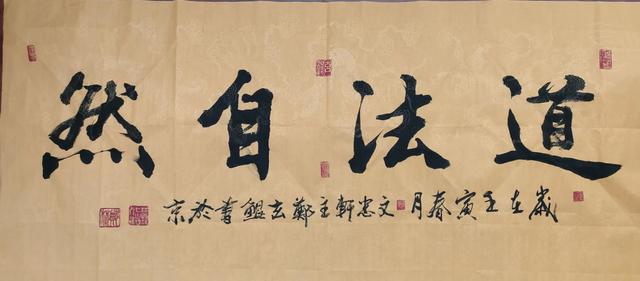 道法自然
歲在壬寅春月文忠軒主鄭玄鯤書於京